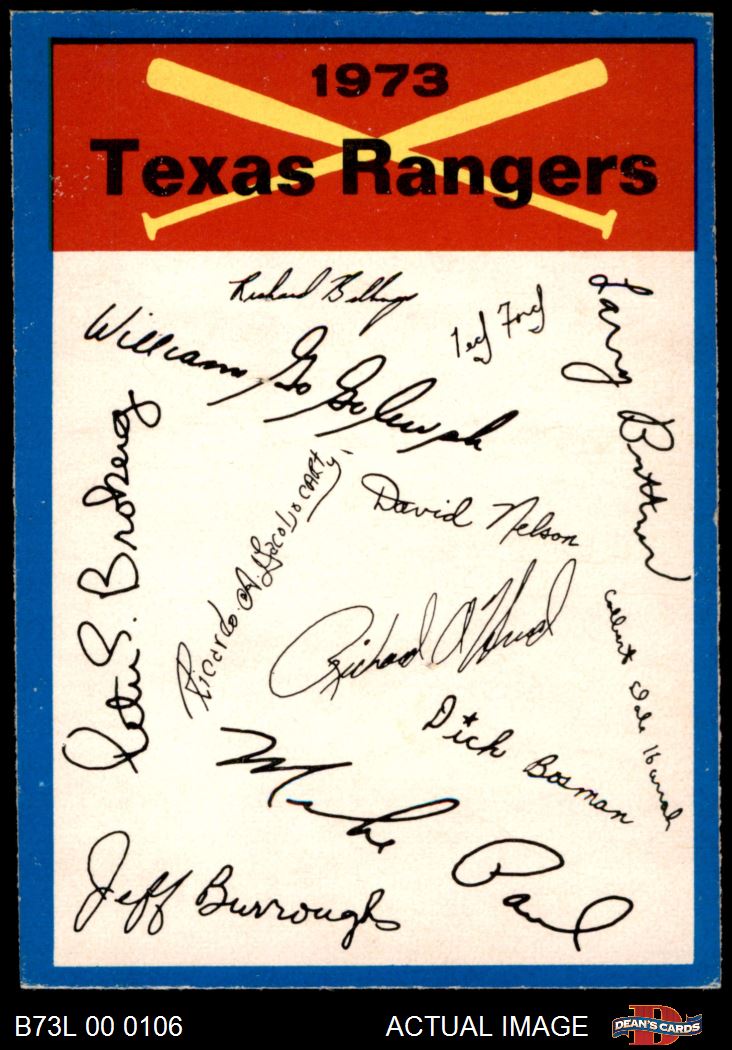 1973
Texas Rangers
Richard Billings
Ted Ford
Larry Bittner
William Go Gogolewski
Peter S. Broberg
Ricardo A. Jacobo CARTY
David Nelson
Richard A
Dick Bosman
Dale
Mike Paul
Jeff Burroughs
B73L 00 0106
ACTUAL IMAGE
D
DEAN'S CARDS